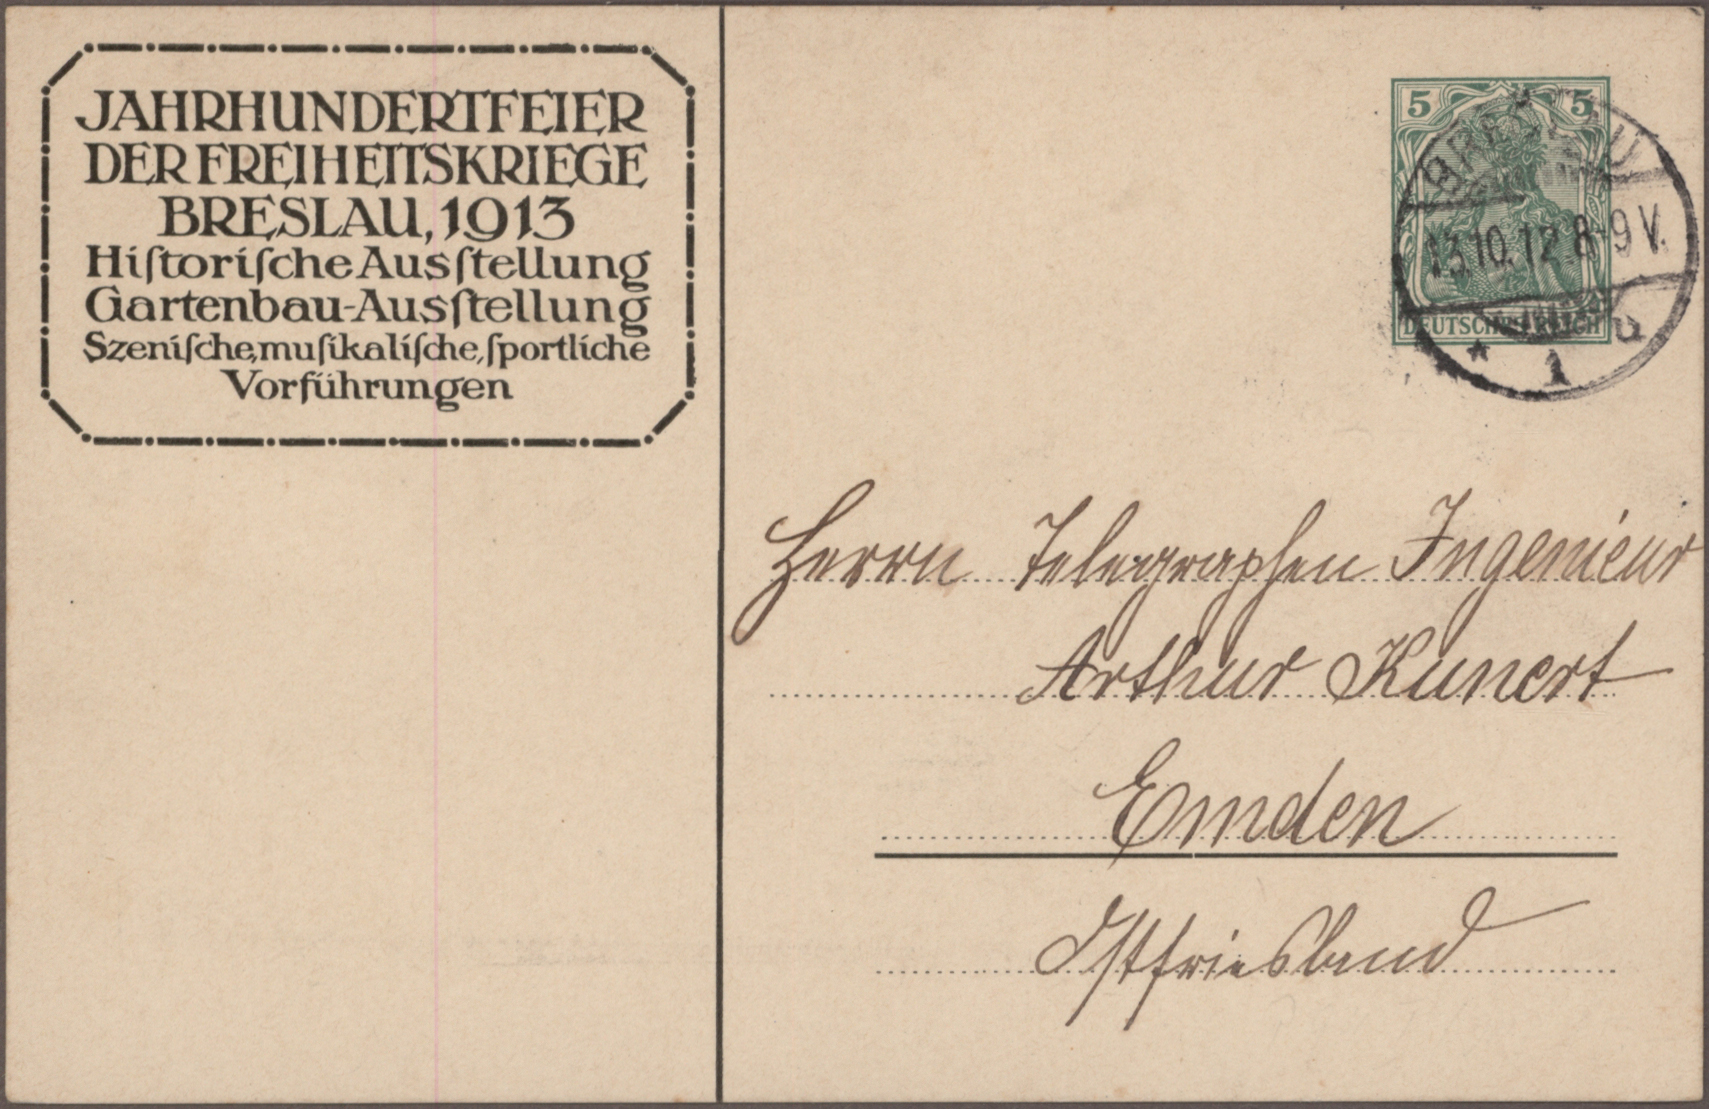 JAHRHUNDERTFEIER
DER FREIHEITSKRIEGE
BRESLAU, 1913
Hiſtoriſche Ausſtellung
Gartenbau-Ausſtellung
Szeniſche, muſikaliſche, ſportliche
Vorführungen
5 5
DEUTSCHES REICH
BRESLAU
13.10.12 8-9 V.
* 1 u
Herrn Telegraphen Ingenieur
Arthur Kunert
Emden
Ostfriesland